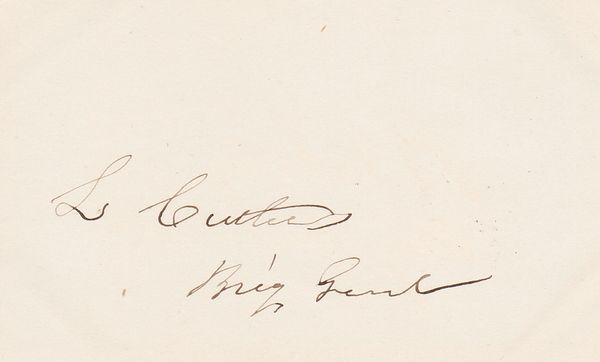 L Cutler
Brig Genl